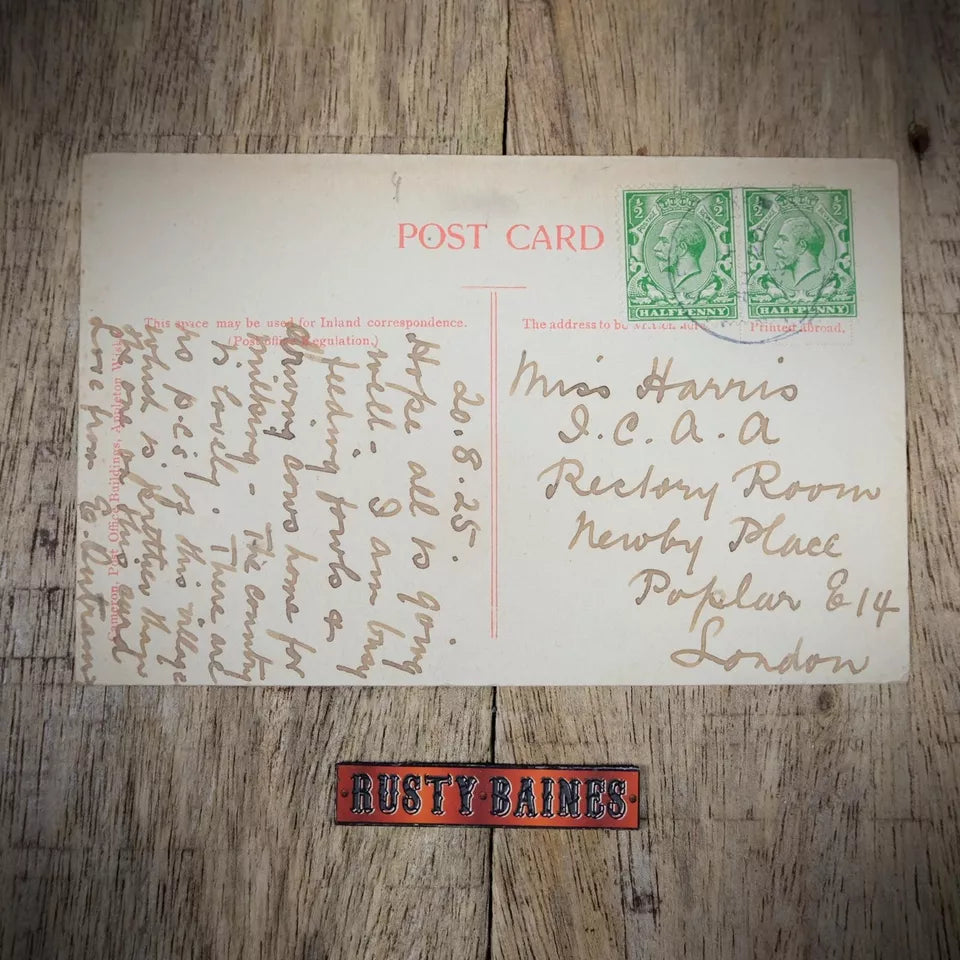 POST CARD
½ ½
HALFPENNY
½ ½
HALFPENNY
This space may be used for Inland correspondence.
(Post Office Regulation.)
The address to be
Printed abroad.
Cameron, Post Office Buildings, Appleton Wiske
20.8.25.
Hope all is going
well - I am busy
feeding fowls &
driving cows home for
milking - The country
is lovely. There are
no p.c's of this village
which is prettier than
the one on this card
Love from E.
Miss Harris
I.C.A.A
Rectory Room
Newby Place
Poplar E14
London
RUSTY BAINES